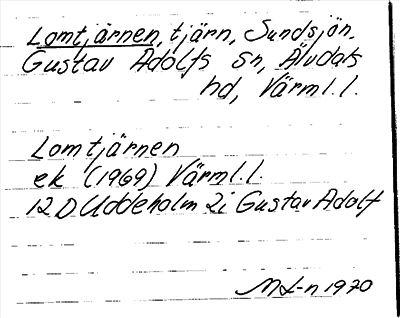 Lomtjärnen, tjärn, Sundsjön.
Gustav Adolfs sn, Älvdals
hd, Värml. l.
Lomtjärnen
ek (1969) Värml. l.
12 D Uddeholm 2i Gustav Adolf
1970